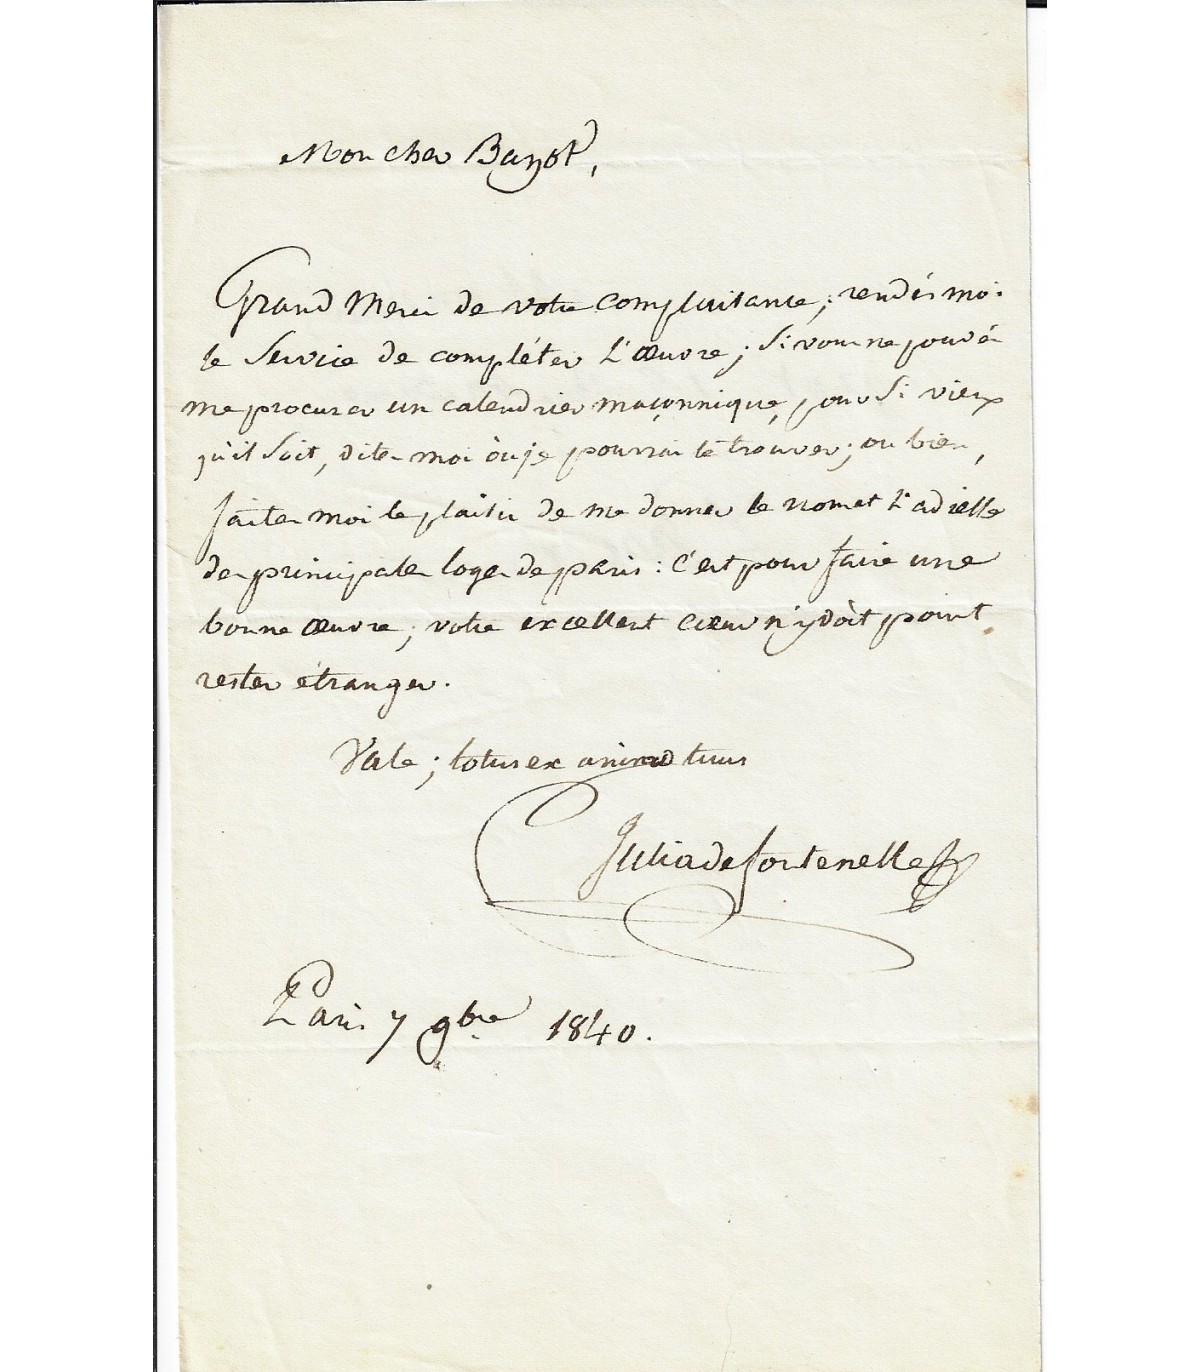 Mon cher Bazot,
Grand Merci de votre complaisance; rendés moi
le Service de compléter L'œuvre; Si vous ne pouvés
me procurer un calendrier maçonnique, pour Si vieux
qu'il Soit, dites moi où je pourrai le trouver; ou bien,
faites moi le plaisir de me donner le nom et L'adresse
des principales loges de paris: c'est pour faire une
bonne œuvre; votre excellent cœur n'y doit point
rester étranger.
Vale; totus ex animo tuus
Julia de fontenelle
Paris 7 9bre 1840.